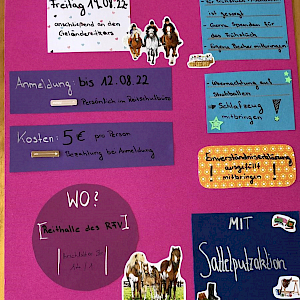 Freitag 19.08.22
anschließend an den
ist gesorgt
Gerne Spenden für
das Frühstück
Eigene Becher mitbringen!
Anmeldung: bis 12.08.22
Persönlich im Reitschulbüro
Übernachtung auf
Strohballen
Schlafzeug
mitbringen
Kosten: 5€ pro Person
Bezahlung bei Anmeldung
Einverständniserklärung
! ausgefüllt !
mitbringen
WO?
Reithalle des RFV
MIT
Sattelputzaktion